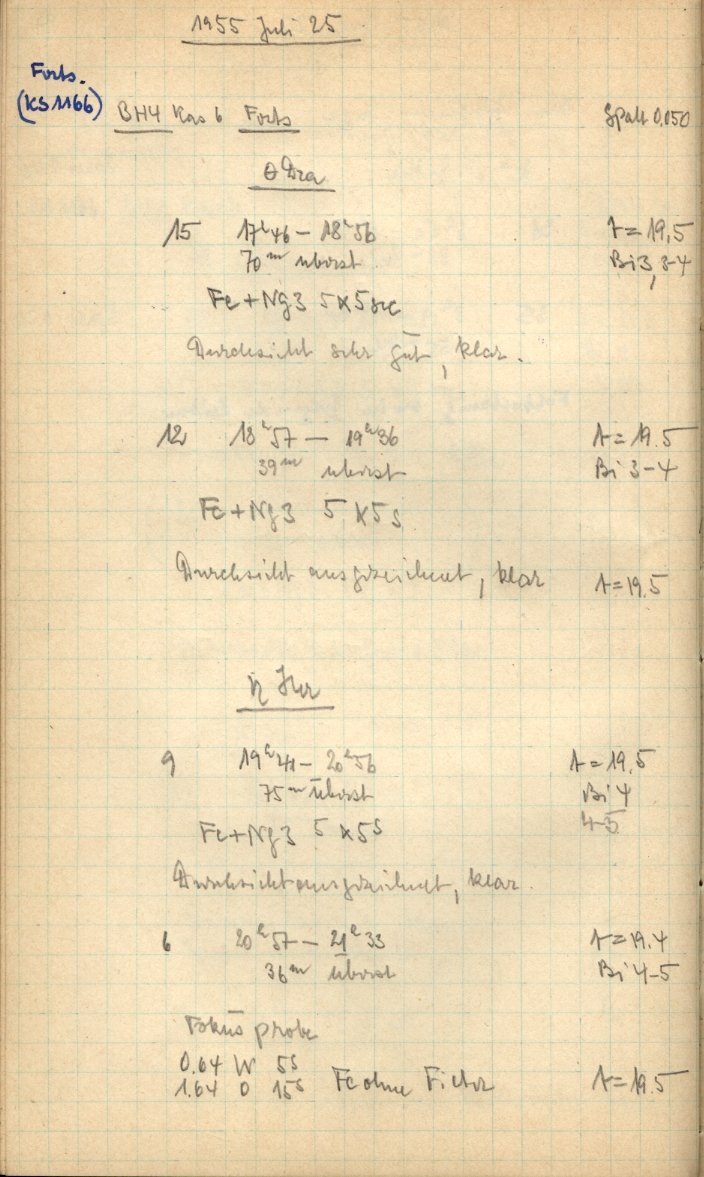 1955 Juli 25
Forts.
(KS1166) BH4 Kas 6 Forts Spalt 0,050
θ Dra
15 17ʰ46 – 18ʰ56 A = 19,5
70ᵐ überst Bi 3, 3-4
Fe + Ng3 5 x 5 sec
Durchsicht sehr gut, klar.
12 18ʰ57 — 19ʰ36 A = 19.5
39ᵐ überst Bi 3-4
Fe + Ng3 5 x 5 s
Durchsicht ausgezeichnet, klar A = 19.5
Her
9 19ʰ41 – 20ʰ56 A = 19.5
75ᵐ überst Bi 4
Fe + Ng3 5 x 5ˢ 4-5
Durchsicht ausgezeichnet, klar.
6 20ʰ57 – 21ʰ33 A = 19.4
36ᵐ überst Bi 4-5
Fokus probe
0.64 W 5ˢ
1.64 O 15ˢ Fe ohne Filter A = 19.5